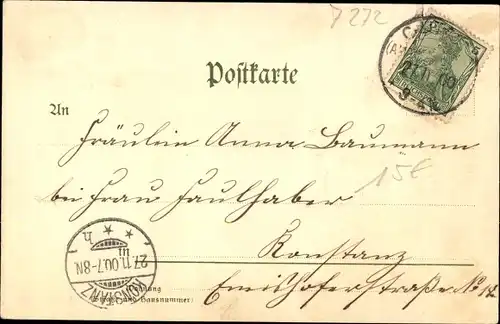 7 272
27.11.00
Postkarte
An
Fräulein Anna Baumann
bei Frau Faulhaber
15€
Konstanz
27.11.00.7-8N
KONSTANZ
Wohnung
(Straße und Hausnummer)
Emishoferstraße No